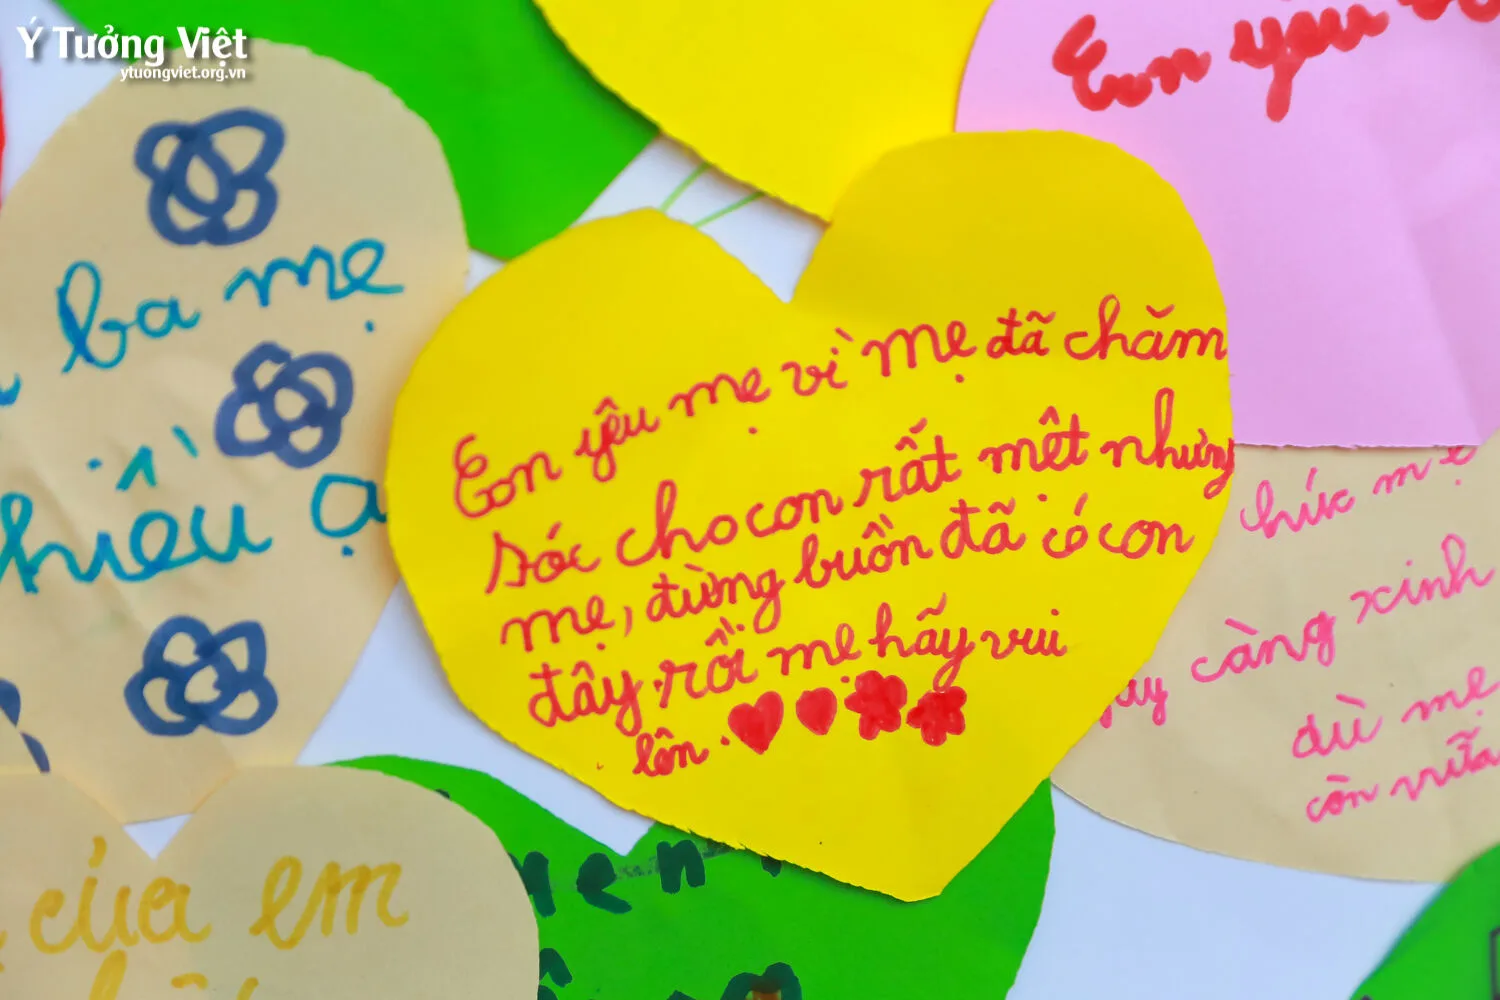 Ý Tưởng Việt
ytuongviet.org.vn
ba mẹ
hiều ạ
Con yêu
Con yêu mẹ vì mẹ đã chăm
sóc cho con rất mệt nhưng
mẹ, đừng buồn đã có con
đây rồi mẹ hãy vui
lên.
húc mẹ
gày càng xinh
dù mẹ
còn vữa
của em
men